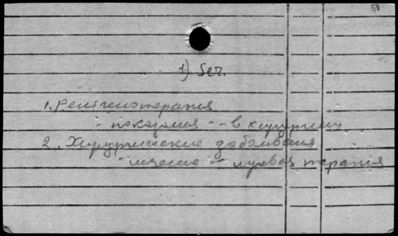 1) Ser.
1. Рентгенотерапия
- показания -- в хирургии
2. Хирургические заболевания
- лечение -- лучевая терапия